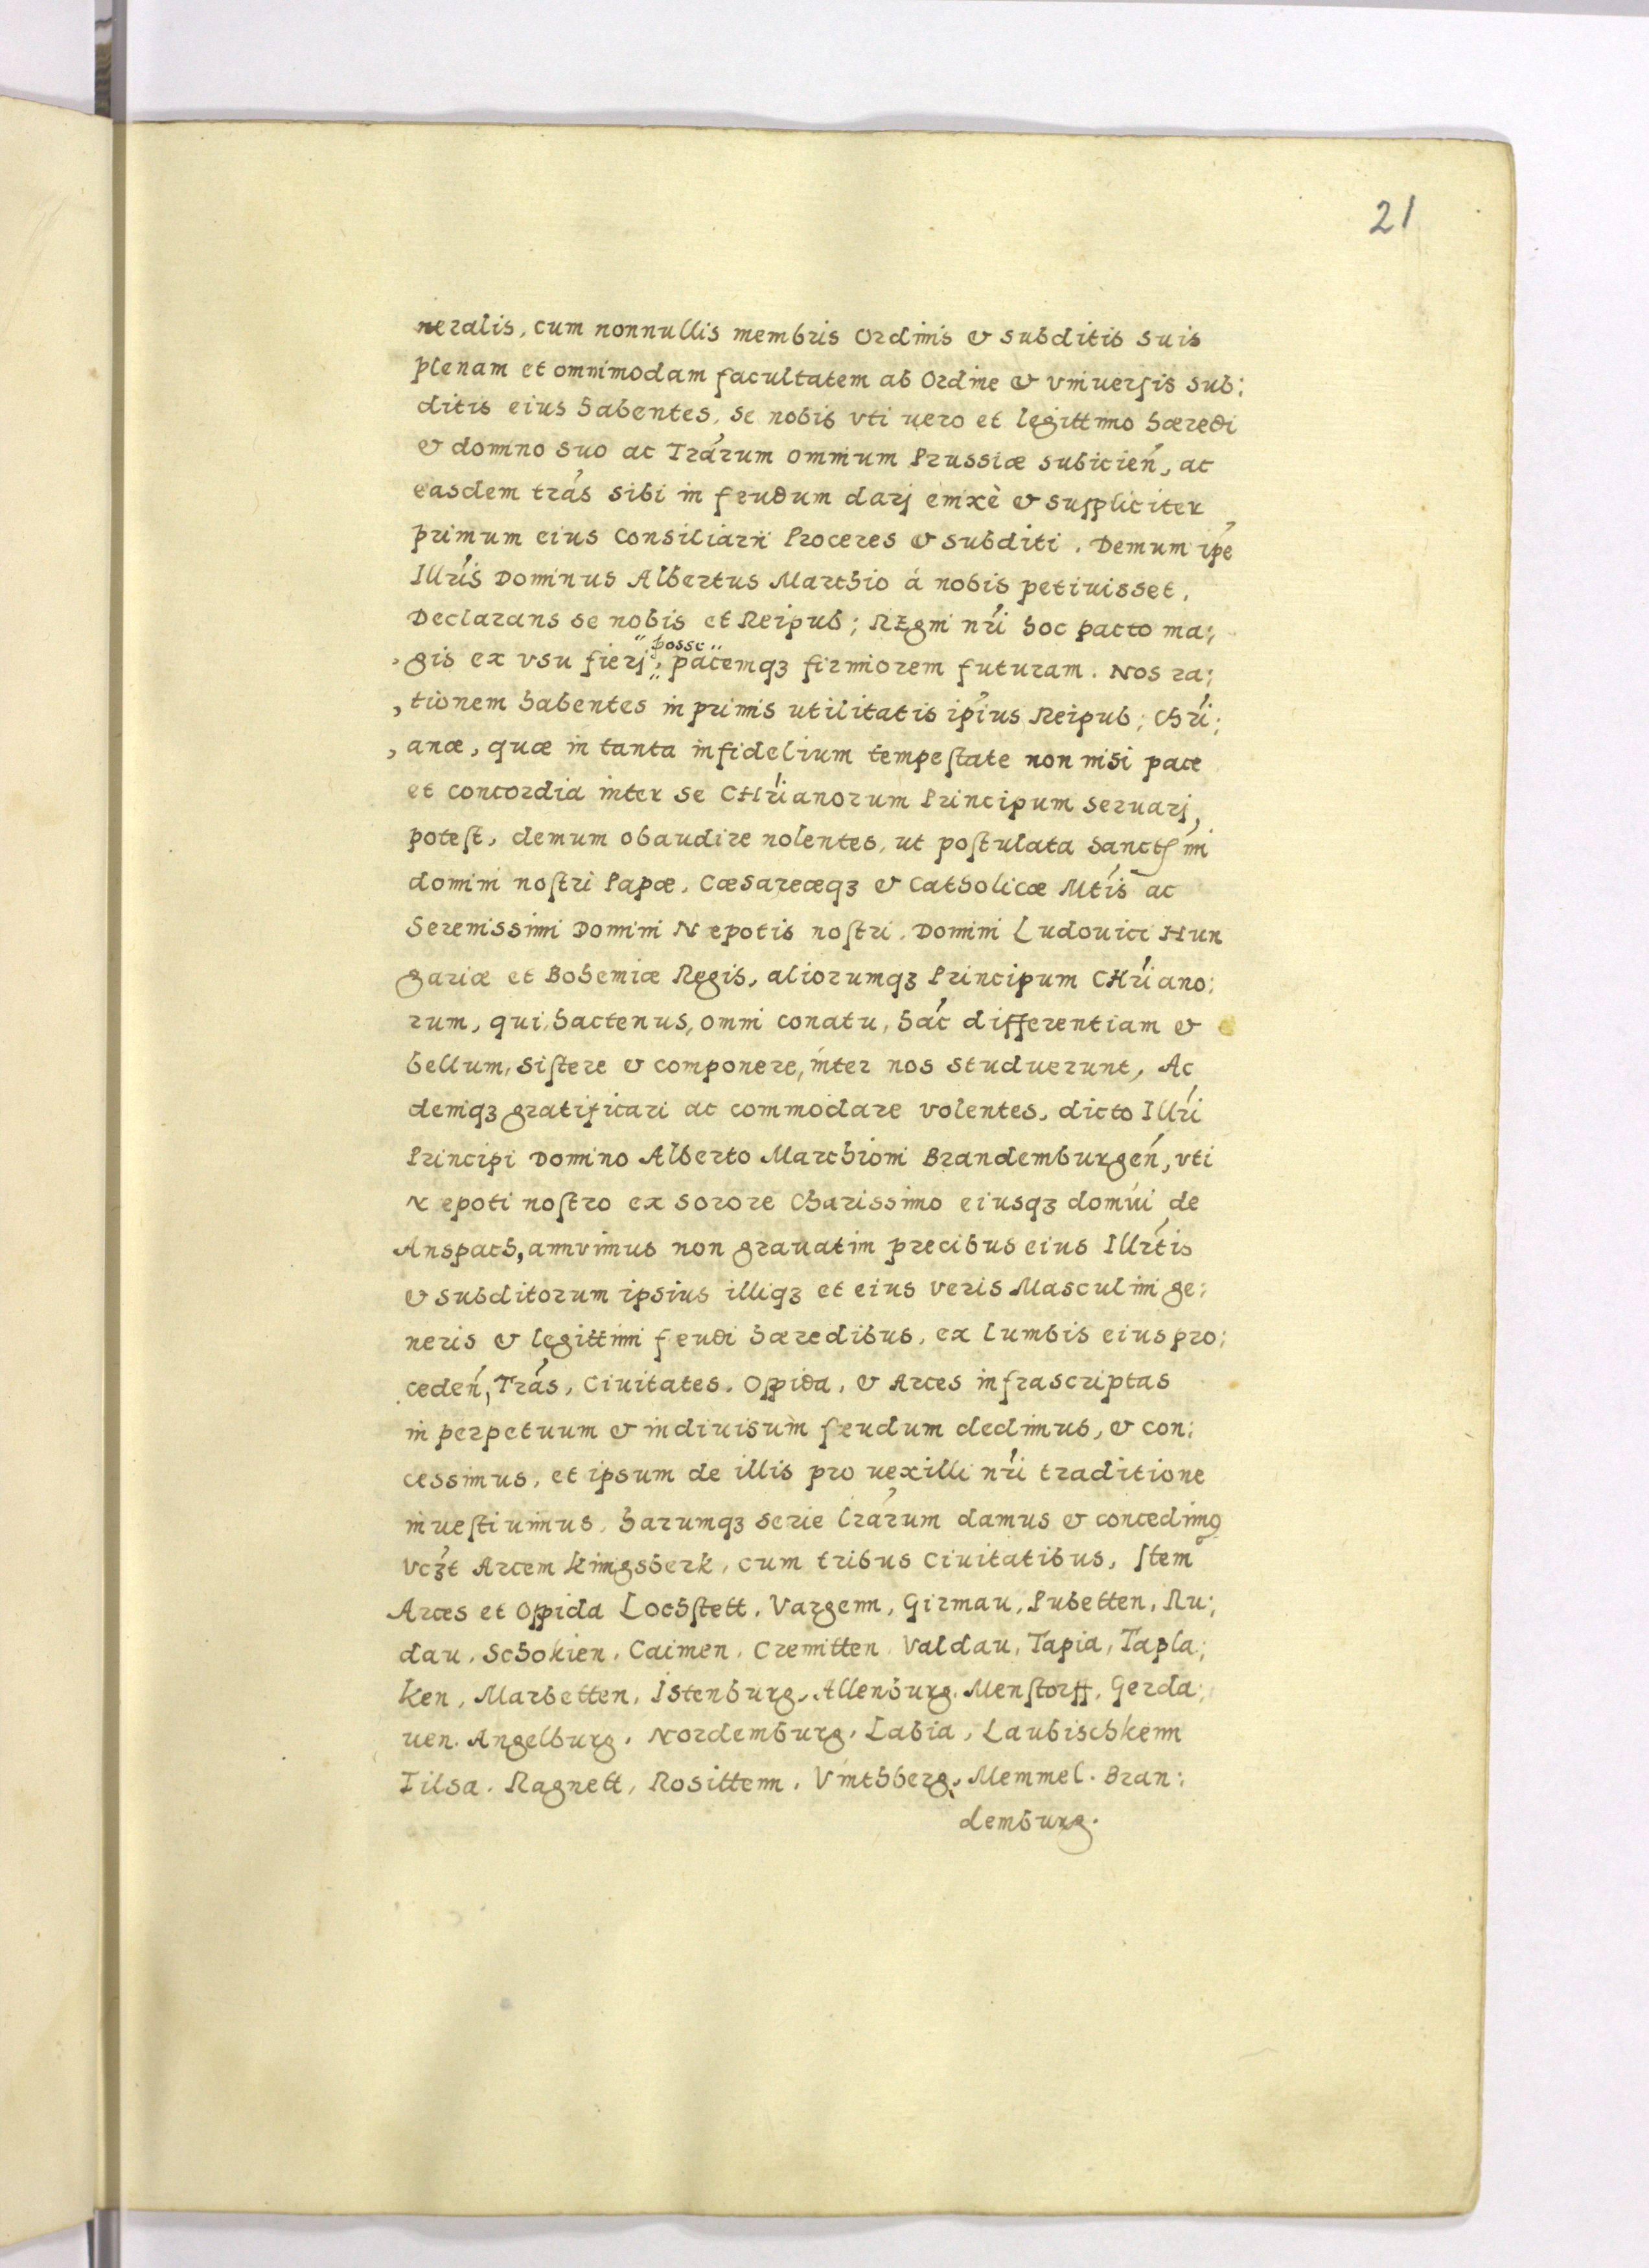 21
neralis, cum nonnullis membris Ordinis & subditis suis
plenam et omnimodam facultatem ab Ordine & vniuersis sub:
ditis eius habentes, se nobis vti uero et legittimo hæredi
& domino suo ac Trárum omnium Prussiæ subicień, ac
easdem trás sibi in feudum darj enixè & suppliciter
primum eius Consiliarii Proceres & subditi. Demum ipé
Illrís Dominus Albertus Marchio á nobis petiuisset,
Declarans se nobis et Reipub; REgni nrí hoc pacto ma:
gis ex vsu fierj posse, pacemqꝫ firmiorem futuram. Nos ra:
,tionem habentes in primis utilitatis ipíus Reipub; Chrí:
,anæ, quæ in tanta infidelium tempestate non nisi pace
et concordia inter se CHríanorum Principum seruarj,
potest, demum obaudire nolentes, ut postulata Sanctssimi
domini nostri Papæ, Cæsareæqꝫ & Catholicæ Mtís ac
Serenissimi Domini Nepotis nostri, Domini Ludouici Hun
gariæ et Bohemiæ Regis, aliorumqꝫ Principum CHríano:
rum, qui hactenus, omni conatu, hác differentiam &
bellum, sistere & componere, inter nos studuerunt, Ac
deniqꝫ gratificari ac commodare volentes, dicto Illrí
Principi Domino Alberto Marchioni Brandemburgeń, vti
Nepoti nostro ex sorore Charissimo eiusqꝫ domui de
Anspach, annvimus non grauatim precibus eius Illrtís
& subditorum ipsius illiqꝫ et eius veris Masculini ge:
neris & legittimi feudi hæredibus, ex lumbis eius pro:
cedeń, Trás, Ciuitates, Oppida, & Arces infrascriptas
in perpetuum & indiuisum feudum dedimus, & con:
cessimus, et ipsum de illis pro uexilli nrí traditione
inuestiuimus, harumqꝫ serie lrárum damus & concedimꝯ
vcꝫt Arcem Kingsberk, cum tribus Ciuitatibus, Item
Arces et Oppida Lochstett, Vargenn, Girmau, Pubetten, Ru:
dau, Schokien, Caimen, Cremitten, Valdau, Tapia, Tapla:
ken, Marbetten, Istenburg, Allenburg, Menstorff, Gerda:
uen, Angelburg, Nordemburg, Labia, Laubischkenn
Tilsa, Ragnett, Rosittenn, Vinthberg, Memmel, Bran:
demburg.